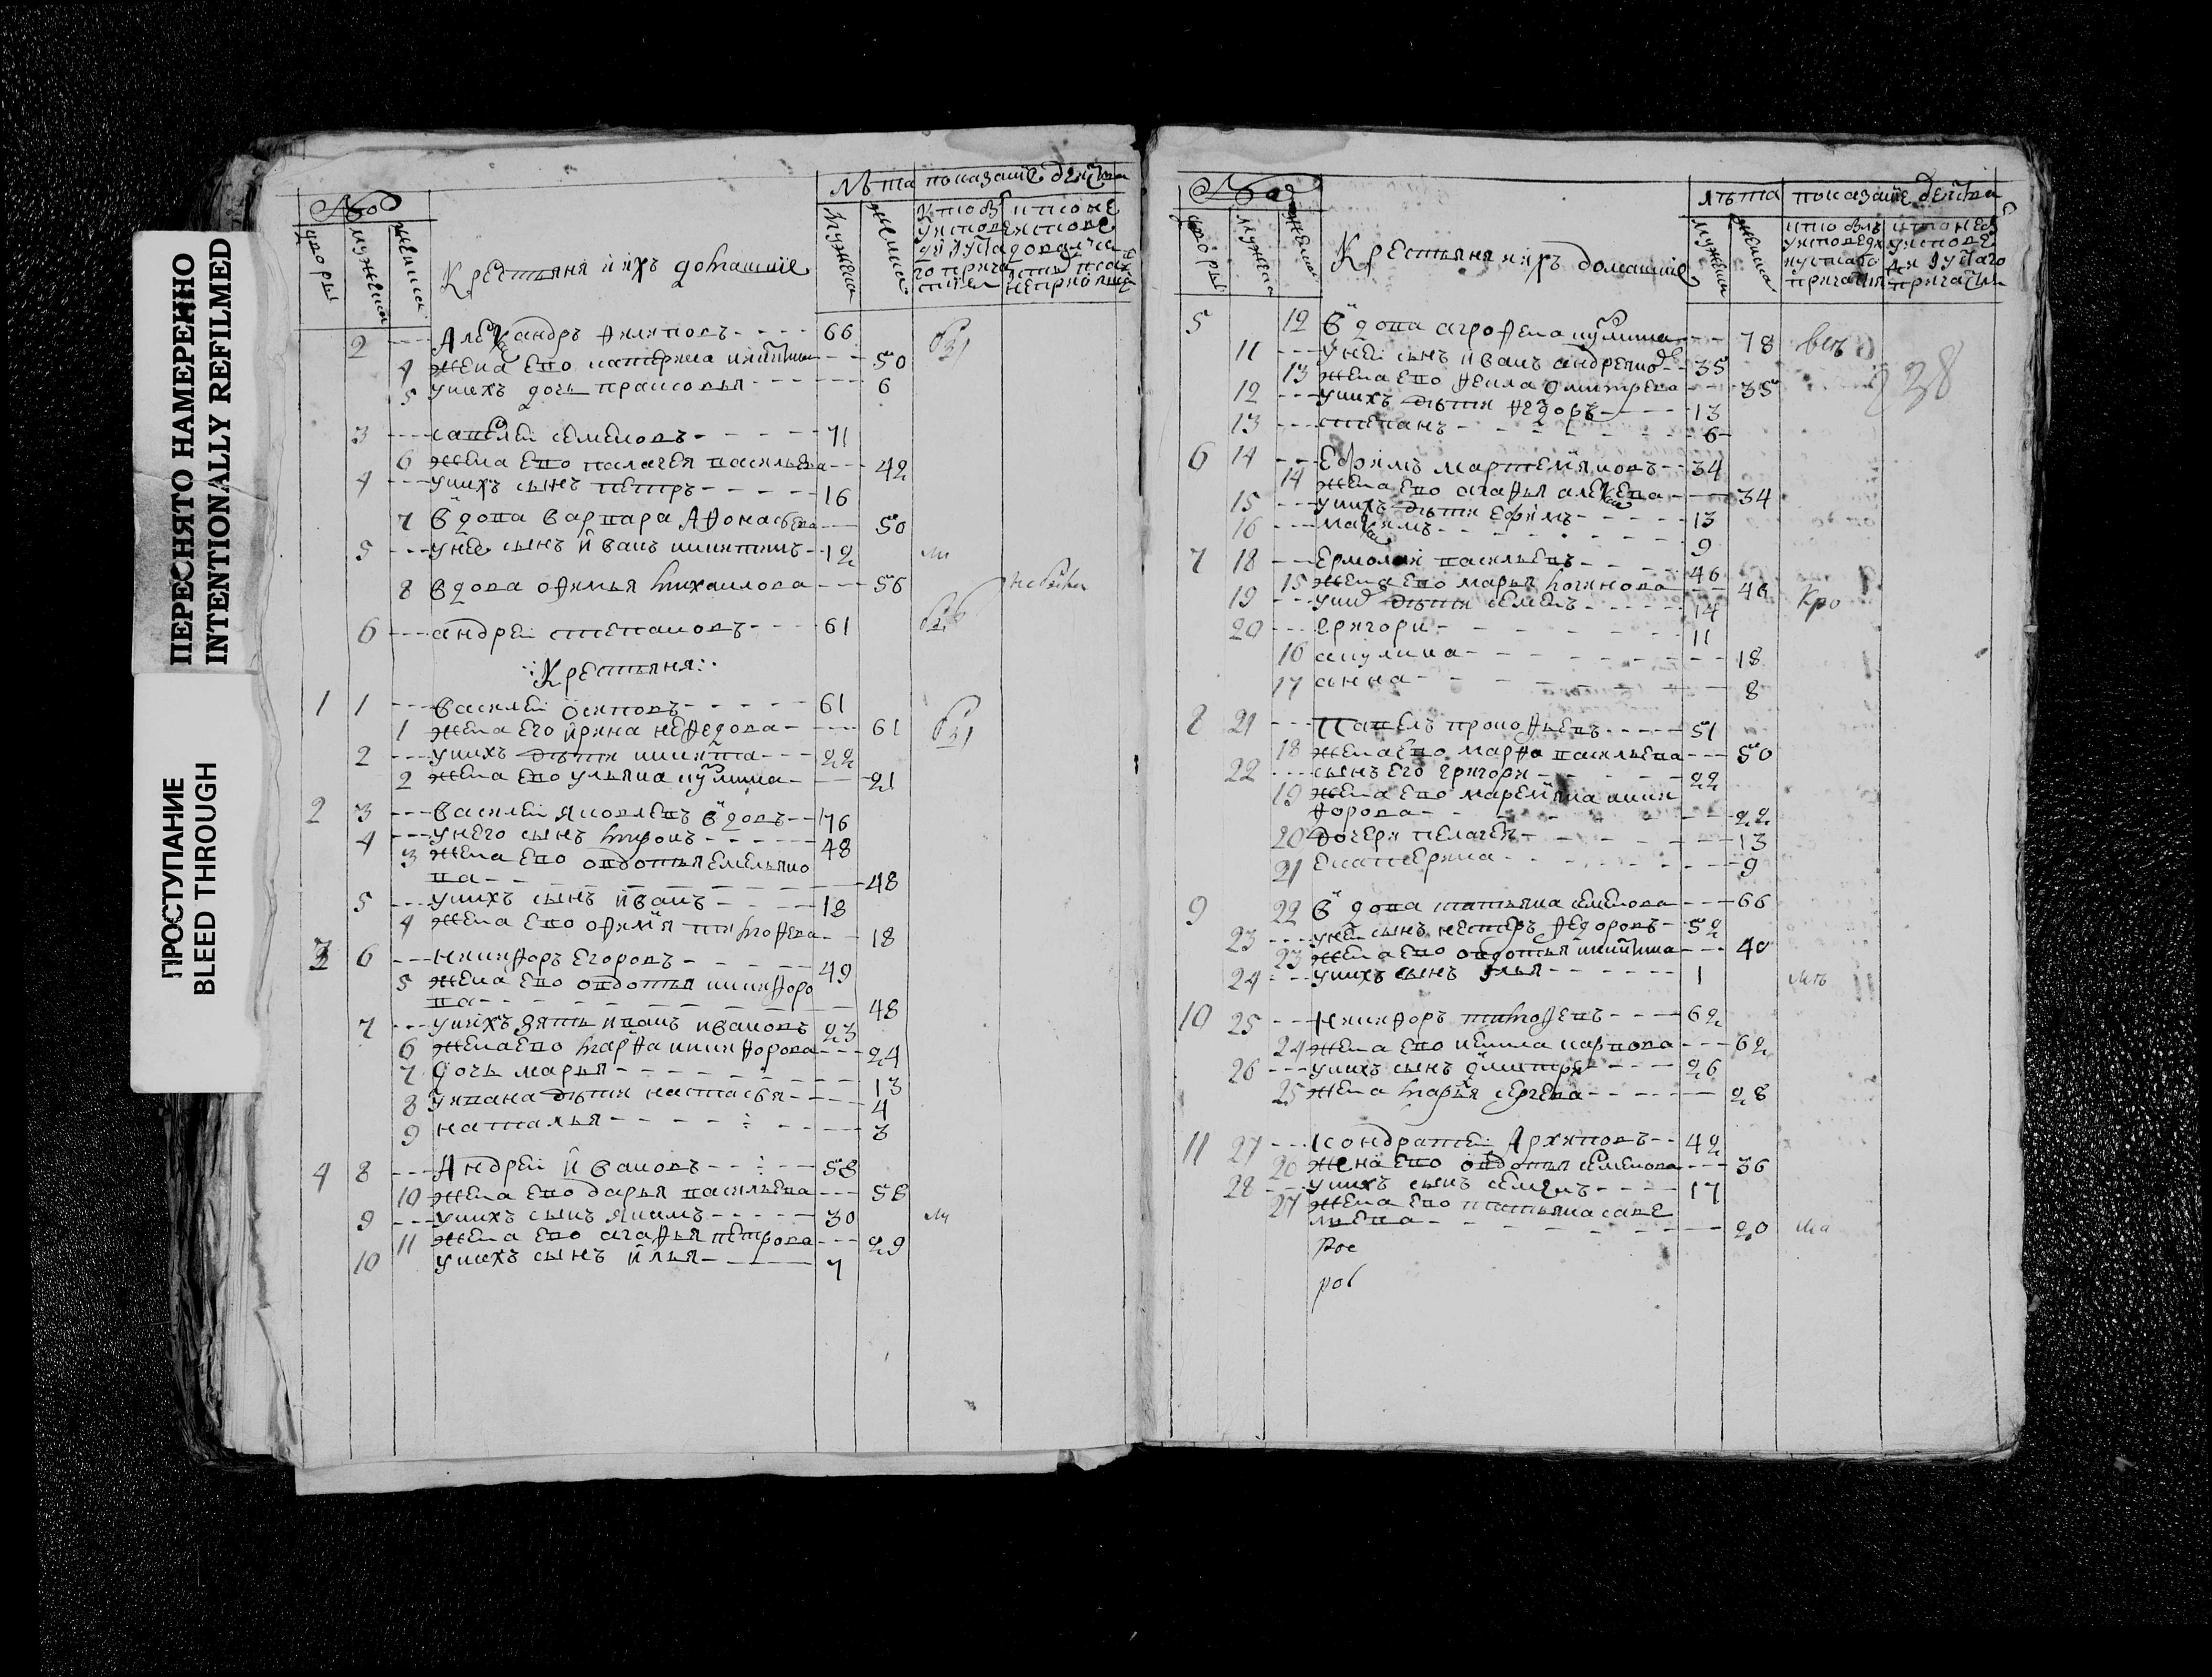 ПЕРЕСНЯТО НАМЕРЕННО
INTENTIONALLY REFILMED
ПРОСТУПАНИЕ
BLEED THROUGH
№
дворы
мужеска
женска
Крестьяня и ихъ домашние
лѣта
показание действа
мужеска
женска
2 --- Александръ Филиповъ --- 66
4 жена ево катерина --- 50
5 у нихъ дочь прасковья --- 6
3 --- савелей семеновъ --- 71
6 жена ево палагея васильева --- 42
4 --- у нихъ сынъ петръ --- 16
7 вдова варвара Афонасьева --- 50
5 --- у нее сынъ иванъ никитинъ --- 12
8 вдова офимья михаилова --- 56
6 --- андрей степановъ --- 61
Крестьяня
1 1 --- василей осиповъ --- 61
1 жена его ирина нефедова --- 61
2 --- у нихъ дѣти никита --- 22
2 жена ево ульяна --- 21
2 3 --- василей яковлевъ вдовъ --- 76
4 --- у него сынъ миронъ --- 48
3 жена ево овдотья емельяно
ва --- 48
5 --- у нихъ сынъ иванъ --- 18
4 жена ево офимия тимофева --- 18
3 6 --- никифоръ егоровъ --- 49
5 жена ево овдотья никифоро
ва --- 48
7 --- у нихъ зять иванъ ивановъ 23
6 жена ево марфа никифорова --- 24
7 дочь марья --- 13
8 у ивана дѣти настасья --- 4
9 наталья --- 3
4 8 --- Андрей ивановъ --- 58
10 жена ево дарья васильева --- 58
9 --- у нихъ сынъ якимъ --- 30
11 жена ево агафья петрова --- 29
10 у нихъ сынъ илья --- 7
№
дворы
мужеска
женска
Крестьяня и ихъ домашние
лѣта
показание действа
мужеска
женска
238
5 12 вдова агрофена --- 78
11 --- у ней сынъ иванъ андреяно --- 35
13 жена ево фекла дмитрева --- 35
12 --- у нихъ дѣти федоръ --- 13
13 --- степанъ --- 6
6 14 --- Ефимъ мартемияновъ -- 34
14 жена ево агафья алексева --- 34
15 --- у нихъ дѣти ефимъ --- 13
16 --- максимъ --- 9
7 18 --- Ермолай васильевъ --- 46
15 жена ево марья логинова --- 46
19 --- у них дѣти семенъ --- 14
20 --- григори --- 11
16 акулина --- 18
17 анна --- 8
8 21 --- Павелъ прокофьевъ --- 51
18 жена ево марфа васильева --- 50
22 --- сынъ его григори --- 22
19 жена ево маремияна ники
форова --- 22
20 дочери пелагея --- 13
21 екатерина --- 9
9 22 вдова татьяна семенова --- 66
23 --- у ней сынъ нестеръ федоровъ - 52
23 жена ево овдотья никитина --- 40
24 --- у нихъ сынъ илья --- 1
10 25 --- никифоръ тимофевъ --- 62
24 жена ево карпова --- 62
26 --- у нихъ сынъ дмитри --- 26
25 жена марья сергева --- 28
11 27 --- кондратей Архиповъ -- 42
26 жена ево овдотья семенова --- 36
28 --- у нихъ сынъ семенъ --- 17
27 жена ево татьяна саве
льева --- 20